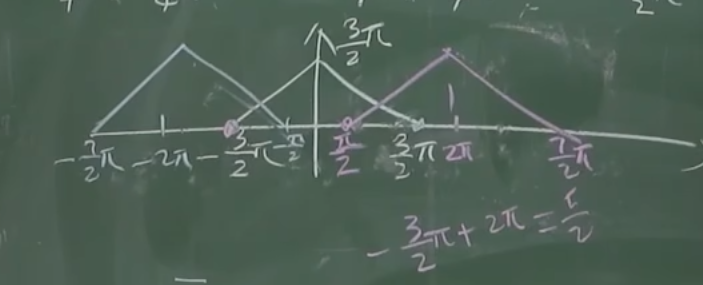 3/2 π
-7/2 π -2π -3/2 π -π/2 π/2 3/2 π 2π 7/2 π
-3/2 π + 2π = π/2